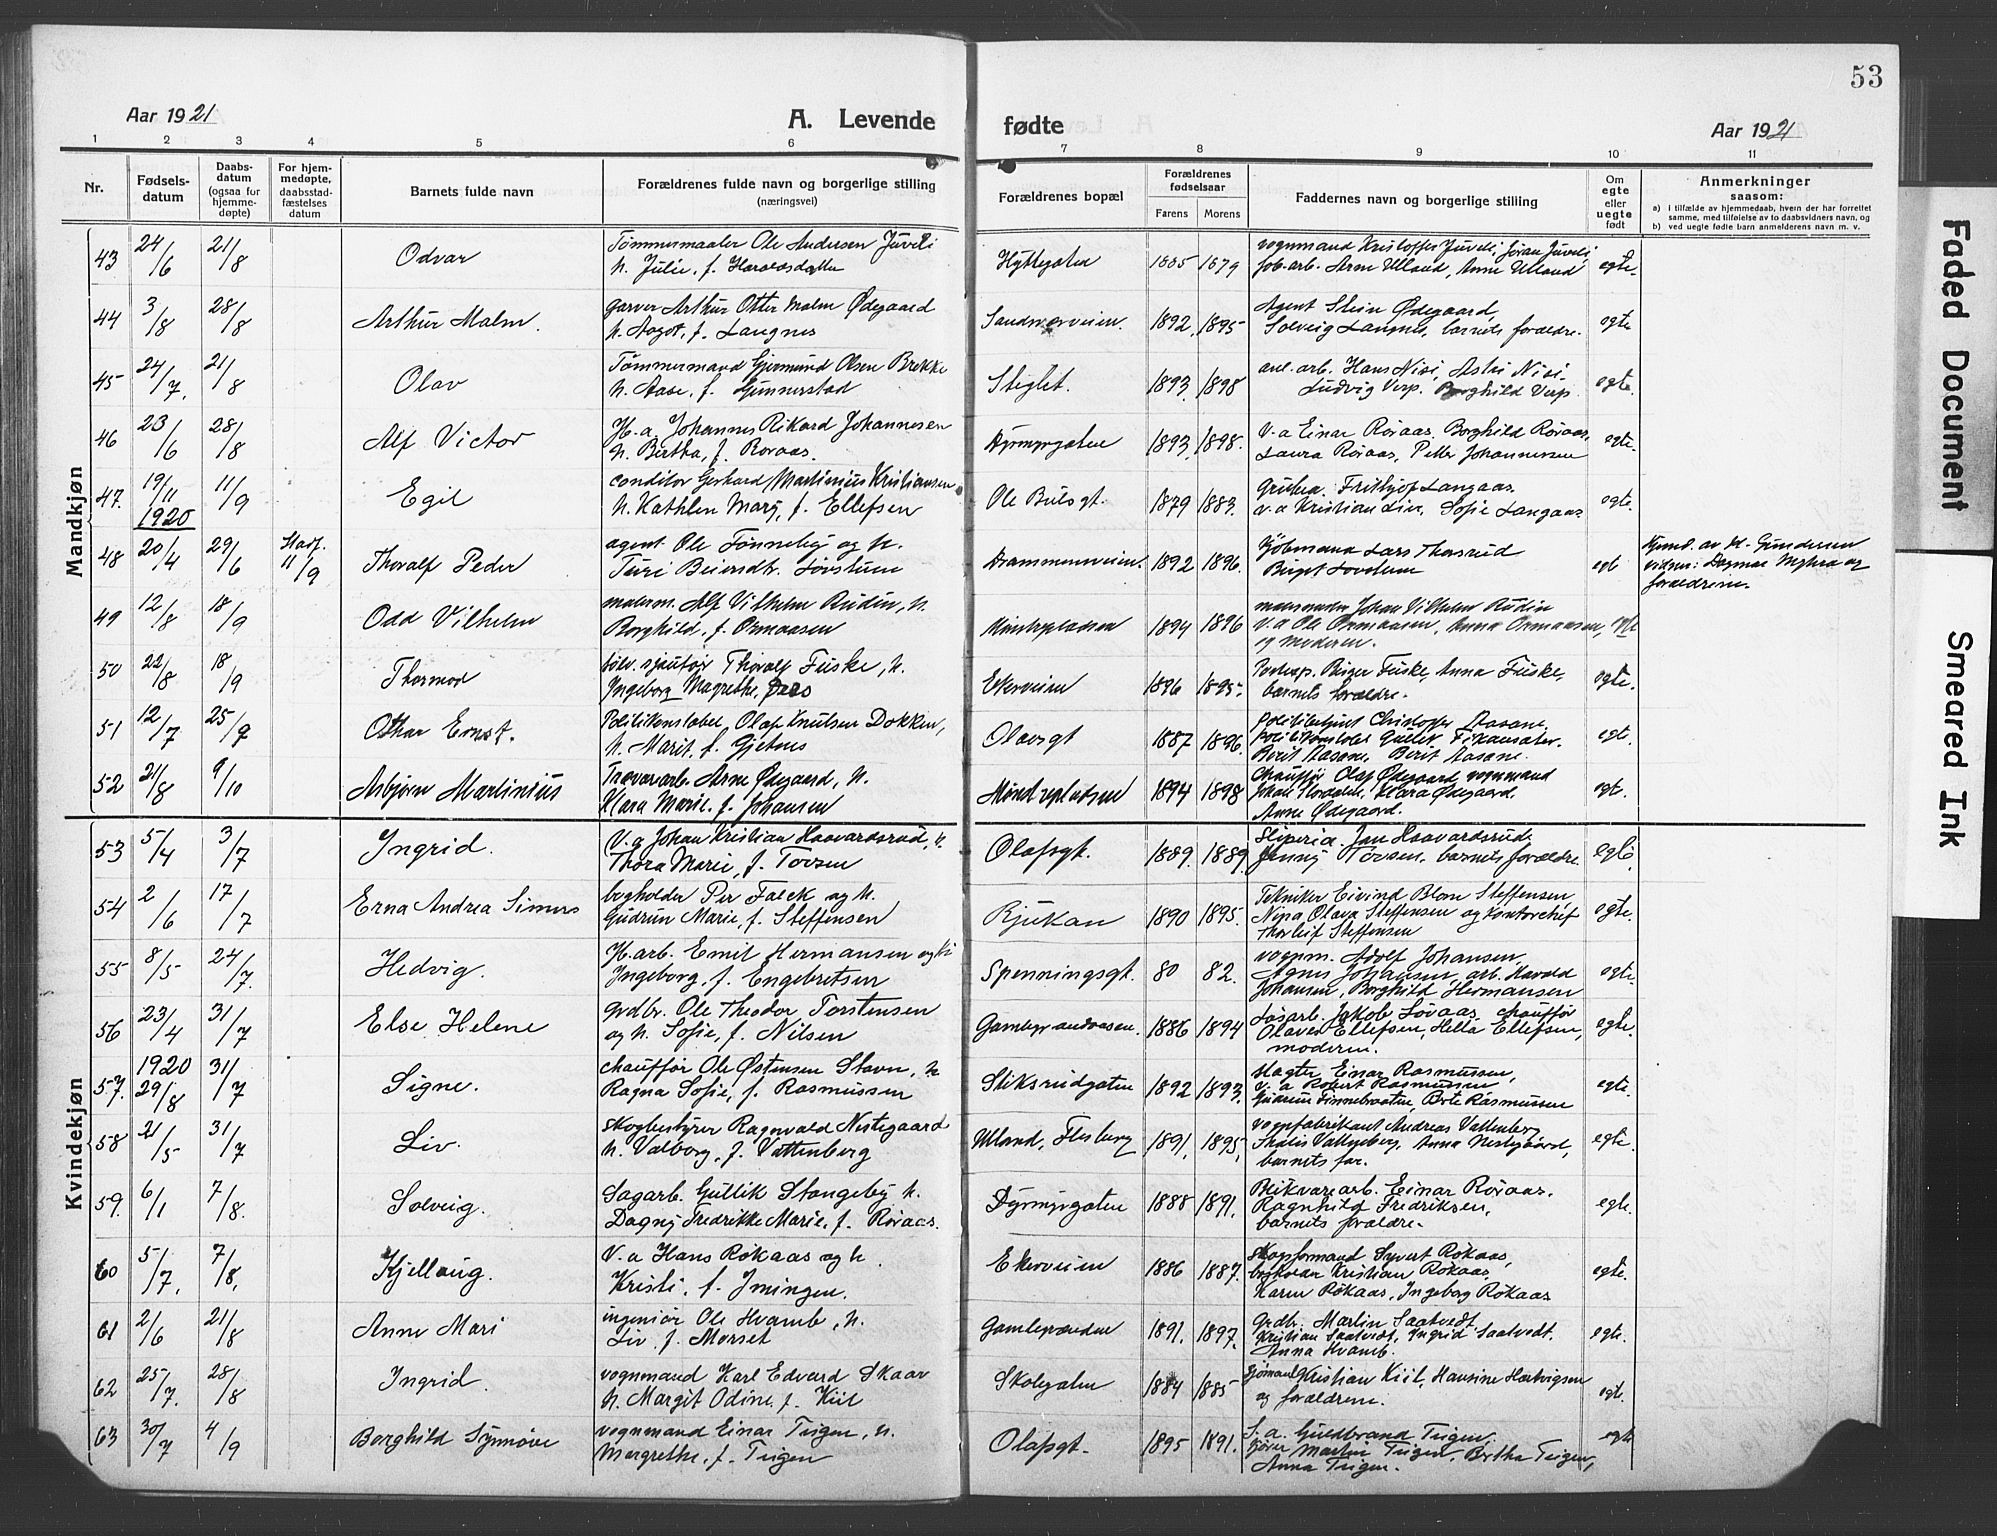 53
Aar 1921
A. Levende
fødte
Aar 1921
1 2 3 4 5 6 7 8 9 10 11
Nr.
Fødsels-
datum
Daabs-
datum
(ogsaa for
hjemme-
døpte)
For hjem-
medøpte,
daabsstad-
fæstelses
datum
Barnets fulde navn
Forældrenes fulde navn og borgerlige stilling
(næringsvei)
Forældrenes bopæl
Forældrenes
fødselsaar
Farens Morens
Faddernes navn og borgerlige stilling
Om
egte
eller
uegte
født
Anmerkninger
saasom:
a) i tilfælde av hjemmedaab, hvem der har forrettet
samme, med tilføielse av to daabsvidners navn, og
b) ved uegte fødte barn anmelderens navn m. v.
Mandkjøn
43 24/6 21/8 Odvar
Tømmermaaler Ole Andersen Juveli
h. Julie, f. Haraldsdatter
Hyttegaten 1885 1879
vognmand Kristoffer Juveli, Jøran Juveli,
fob.arb. Arne Ulland, Anne Ulland
egte.
44 3/8 28/8 Arthur Malm.
garver Arthur Otter Malm Ødegaard
h. Aagot, f. Langnes
Sandsverveien. 1892, 1895
Agent Stein Ødegaard,
Solveig Langnes, barnets forældre.
egte
45 24/7. 21/8 Olav
Tømmermand Gjermund Olsen Brekke
h. Aase, f. Gunnerstad
Steglet. 1893. 1898
anl. arb. Hans Nisi, Astri Nisi
Ludvig Verp. Borghild Verp
egte.
46 23/6 28/8 Alf Victor
H. a Johannes Rikard Johannesen
h. Bertha, f. Roraas.
Dyrmyrgaten 1893, 1898.
v. a Einar Røraas, Borghild Røraas,
Laura Røraas, Petter Johannessen
egte.
47. 19/11 1920 11/9 Egil
conditor Gerhard Martinius Kristiansen
h. Kathlen Mary, f. Ellefsen
Ole Bulsgt. 1879 1883.
Frithjof Langaas
v. a Kristian Lier, Sofie Langaas
egte.
48 20/4 29/6 Stadf. 11/9 Thoralf Peder
agent Ole Tønneby og h.
Turi Beiersdtr. Løvstuen
Drammensveien. 1892 1896.
Kjøbmand Lars Thorsrud
Birgit Lovstuen
egte
Hjemd. av H. Gundersen
vidner: Dagmar Myhra og
forældrene.
49 12/8 18/9 Odd Vilhelm
malerm. Alf Vilhelm Rudin, h.
Borghild, f. Ormaasen
Mynteplassen 1894 1896
malermester Johan Vilhelm Rudin
v. a Ole Ormaasen, Anna Ormaasen,
og moderen.
egte
50 22/8 18/9 Thormod
sølv. sjautør Thoralf Fuske, h.
Ingeborg Magrethe, f. Aas
Ekerveien 1896 1895.
Postexp. Birger Fuske, Anna Fuske,
barnets forældre.
egte.
51 12/7 25/9 Othar Ernst.
Politikonstabel Olaf Knutsen Dokken,
h. Marit, f. Gjetnes
Olavsgt 1887 1896.
politibetjent Christoffer Aasane,
politikonstabel Gullik
Berit Aasane, Berit Aasane.
egte.
52 21/8 9/10 Asbjørn Martinius
Trævarearb. Arne Ødegaard, h.
Klara Marie, f. Johansen
Myntrepladsen 1894 1898
chauffør Olaf Ødegaard, vognmand
Johan Thoresen, Klara Ødegaard,
Anne Ødegaard.
egte.
Kvindekjøn
53 5/4 3/7 Ingrid.
V. a Johan Kristian Haavardsrud, h.
Thora Marie, f. Tovsen
Olafsgt. 1889. 1889.
Sliperia. Jan Haavardsrud,
Jenny Tovsen, barnets forældre.
egte.
54 2/6 17/7 Erna Andrea Simers
bogholder Per Falck og h.
Gudrun Marie, f. Steffensen
Rjukan 1890 1895.
Tekniker Eivind Blom Steffensen,
Nina Olava Steffensen og kontorchef
Thorleif Steffensen
egte.
55 8/5 24/7. Hedvig.
H. arb. Emil Hermansen og h
Ingeborg, f. Engebretsen
Spenningsgt. 80 82.
vognm. Adolf Johansen,
Agnes Johansen, arb. Harald
Johansen, Borghild Hermansen
egte.
56 23/4 31/7 Else Helene
grdbr. Ole Theodor Torstensen
og h. Sofie, f. Nilsen
Gamlegrandaasen. 1886 1894
Løsarb. Jakob Løvaas, chauffør
Olaves Ellefsen, Hella Ellefsen,
moderen.
egte.
57. 1920 29/8 31/7 Signe.
chauffør Ole Østensen Stavn, h
Ragna Sofie, f. Rasmussen
Stiksrudgaten 1892 1893.
slagter Einar Rasmussen,
v. a Robert Rasmussen
Gudrun Finnebraaten, Berte Rasmussen
egte
58 21/5 31/7 Liv.
skogbestyrer Ragnvald Nestegaard
h. Valborg, f. Vattenberg
Ulland, Flesberg 1891, 1895,
vognfabrikant Andreas Vattenberg
Thalis Vattenberg, Anna Nestegaard,
barnets far.
egte.
59. 6/1 7/8. Solveig.
Sagarb. Gullik Stongeby h.
Dagny Fredrikke Marie, f. Røraas.
Dyrmyrgaten 1888 1891.
Blikvarearb. Einar Røraas.
Ragnhild Fredriksen,
barnets forældre.
egte.
60 5/7. 7/8. Kjellaug.
V. a Hans Røkaas og h.
Kristi, f. Imingen.
Ekerveien 1886 1887.
skogsformand Syvert Røkaas,
bogholder Kristian Røkaas,
Karen Røkaas, Ingeborg Røkaas
egte.
61 2/6 21/8 Anne Mari
ingeniør Ole Hvamb, h.
Liv f. Morset
Gamlegrænden 1891. 1897.
Grdb. Martin Saatvedt
Kristian Saatvedt, Ingrid Saatvedt.
Anna Hvamb.
egte.
62 25/7. 28/8 Ingrid.
vognmand Karl Edvard Skaar
h. Margit Odine, f. Kiil
Skolegaten 1884 1885
sjømand Kristian Kiil, Hansine Hartvigsen
og forældrene.
egt.
63 30/7 4/9 Borghild Synnøve
vognmand Einar Teigen, h.
Margrethe, f. Teigen
Olafsgt. 1895 1891.
S. a. Guldbrand Teigen
Martin Teigen, Bertha Teigen,
Anna Teigen.
egte
Faded Document
Smeared Ink